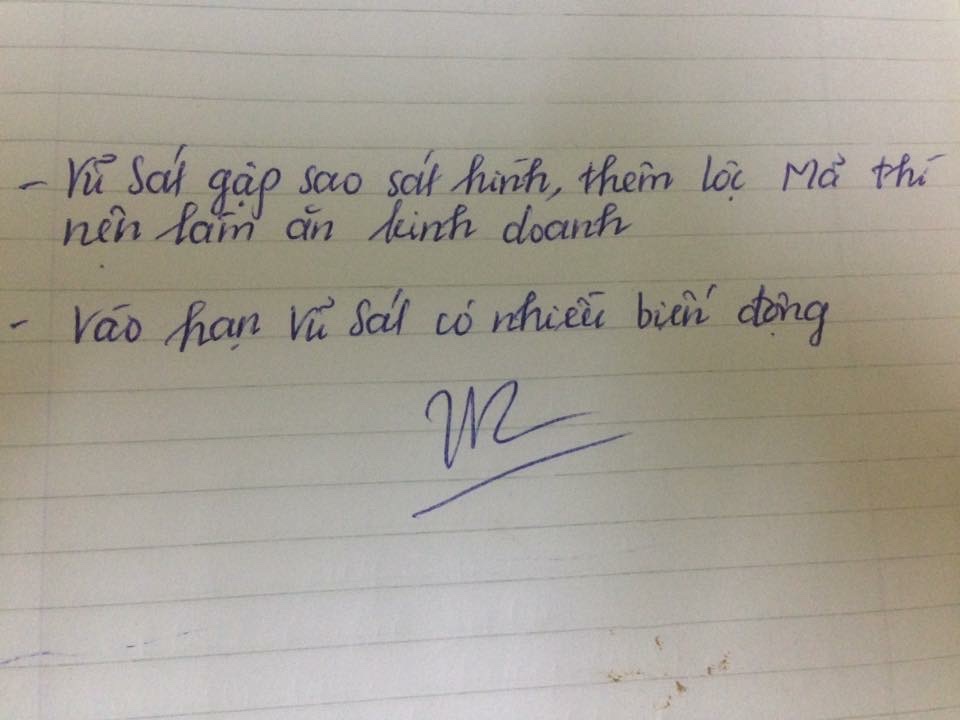 - Vũ Sát gặp sao sát hình, thêm lộc Mã thì
nên làm ăn kinh doanh
- Vào hạn Vũ Sát có nhiều biến động